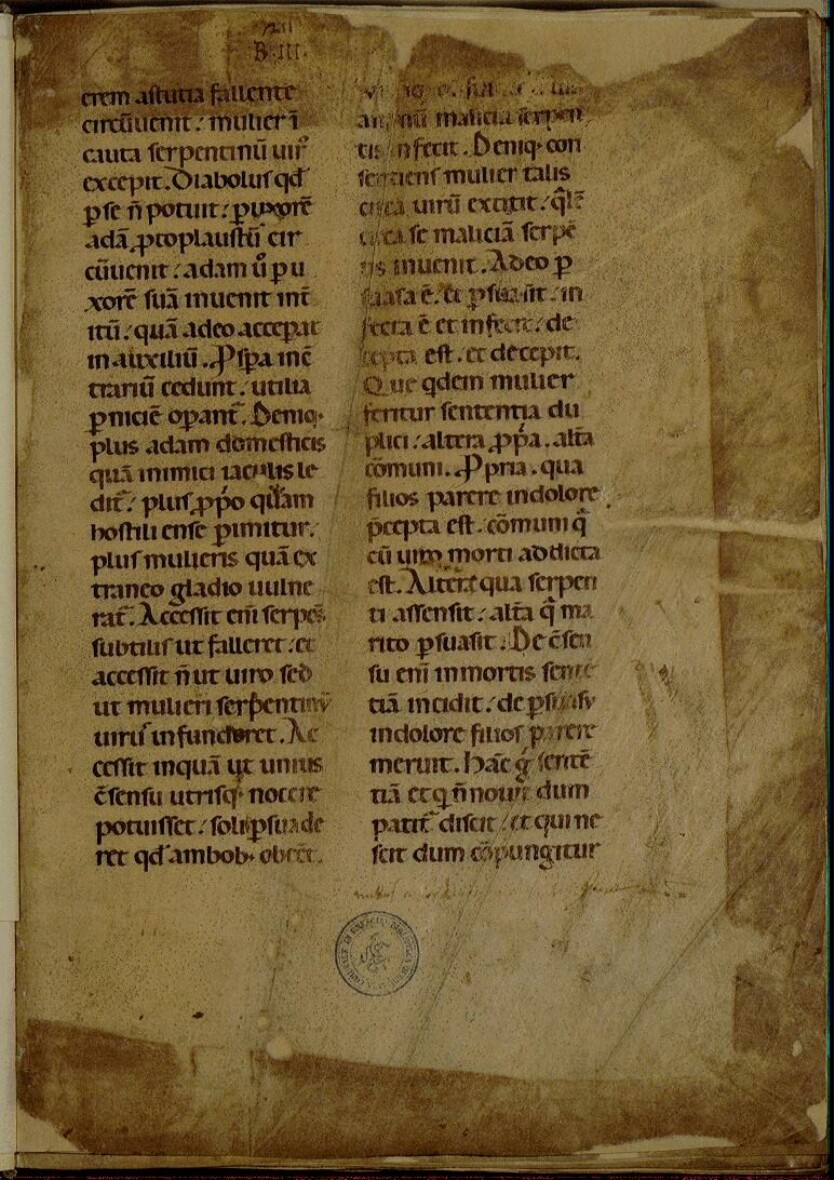 B·III·
erem astutia fallente
circūuenit: mulier ī
cauta serpentinū uir᷒
excepit. Diabolus qd̄
ꝑse n̄ potuit: ꝑ uxorē
adā ꝓtoplaustū cir
cūuenit: adam ū ꝑ u
xorē suā inuenit int̄
itū: quā adeo acceperat
in auxiliū. Ꝓspa inē
trariū cedunt: utilia
ꝑniciē oꝑant̄. Deniq·
plus adam domesticis
quā inimici iaculis le
dit̄: plus ꝓp̄o quā
hostili ense ꝑimitur.
plus mulieris quā ex
traneo gladio uulne
rat̄. Accessit eni᷒ serpēs
subtilis ut falleret: et
accessit n̄ ut uiro sed
ut mulieri serpentinū
uirus infunderet. Ac
cessit inquā ut unius
c̄sensu utrisq· nocere
potuisset: soli ꝑsuade
ret qd̄ ambob· obēet.
malicia serpen
tis infecit. Deniq· con
sentiens mulier talis
circa uirū extitit: q̄lē
circa se maliciā serpē
tis inuenit. Adeo ꝑ
suasa ē. et ꝑsuasit: in
fecta ē et infecit: de
cepta est. et decepit.
Que qdem mulier
feritur sententia du
plici: altera ꝓp̄a. alt̄a
cōmuni. Ꝓpria. qua
filios parere indolore
p̄cepta est. cōmuni q̄
cū uiro morti addicta
est. Altera qua serpen
ti assensit: alt̄a q̄ ma
rito ꝑsuasit. De c̄sen
su enī in mortis senten
tiā incidit: de ꝑsuasu
indolore filios parere
meruit. Hāc g̊ sentē
tiā et q n̄ nouit dum
patit̄ discit: et qui ne
scit dum cōpungitur